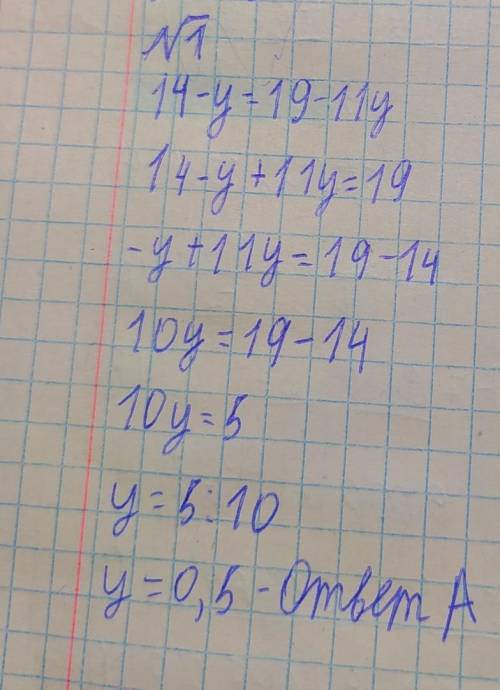 №1
14-y=19-11y
14-y+11y=19
-y+11y=19-14
10y=19-14
10y=5
y=5:10
y=0,5-Ответ А